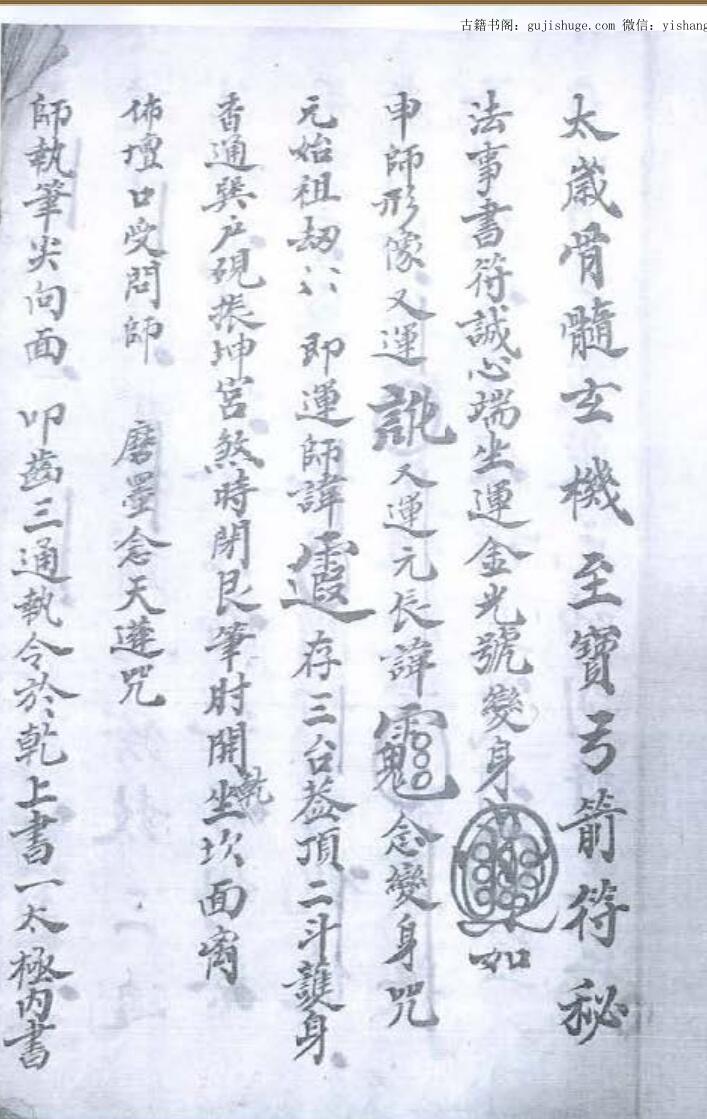 古籍书阁：gujishuge.com 微信：yishang
太歲骨髓玄機至寶弓箭符秘
法事書符誠心端坐運金光號變身如
申師形像又運又運元長諱念變身咒
元始祖劫〻即運師諱霞存三台蓋頂二斗護身
香通巽戶硯振坤宮煞時閉艮筆肘開乾坐坎面离
佈壇口受問師 磨墨念天蓬咒
師執筆尖向面 叩齒三通執令於乾上書一太極內書